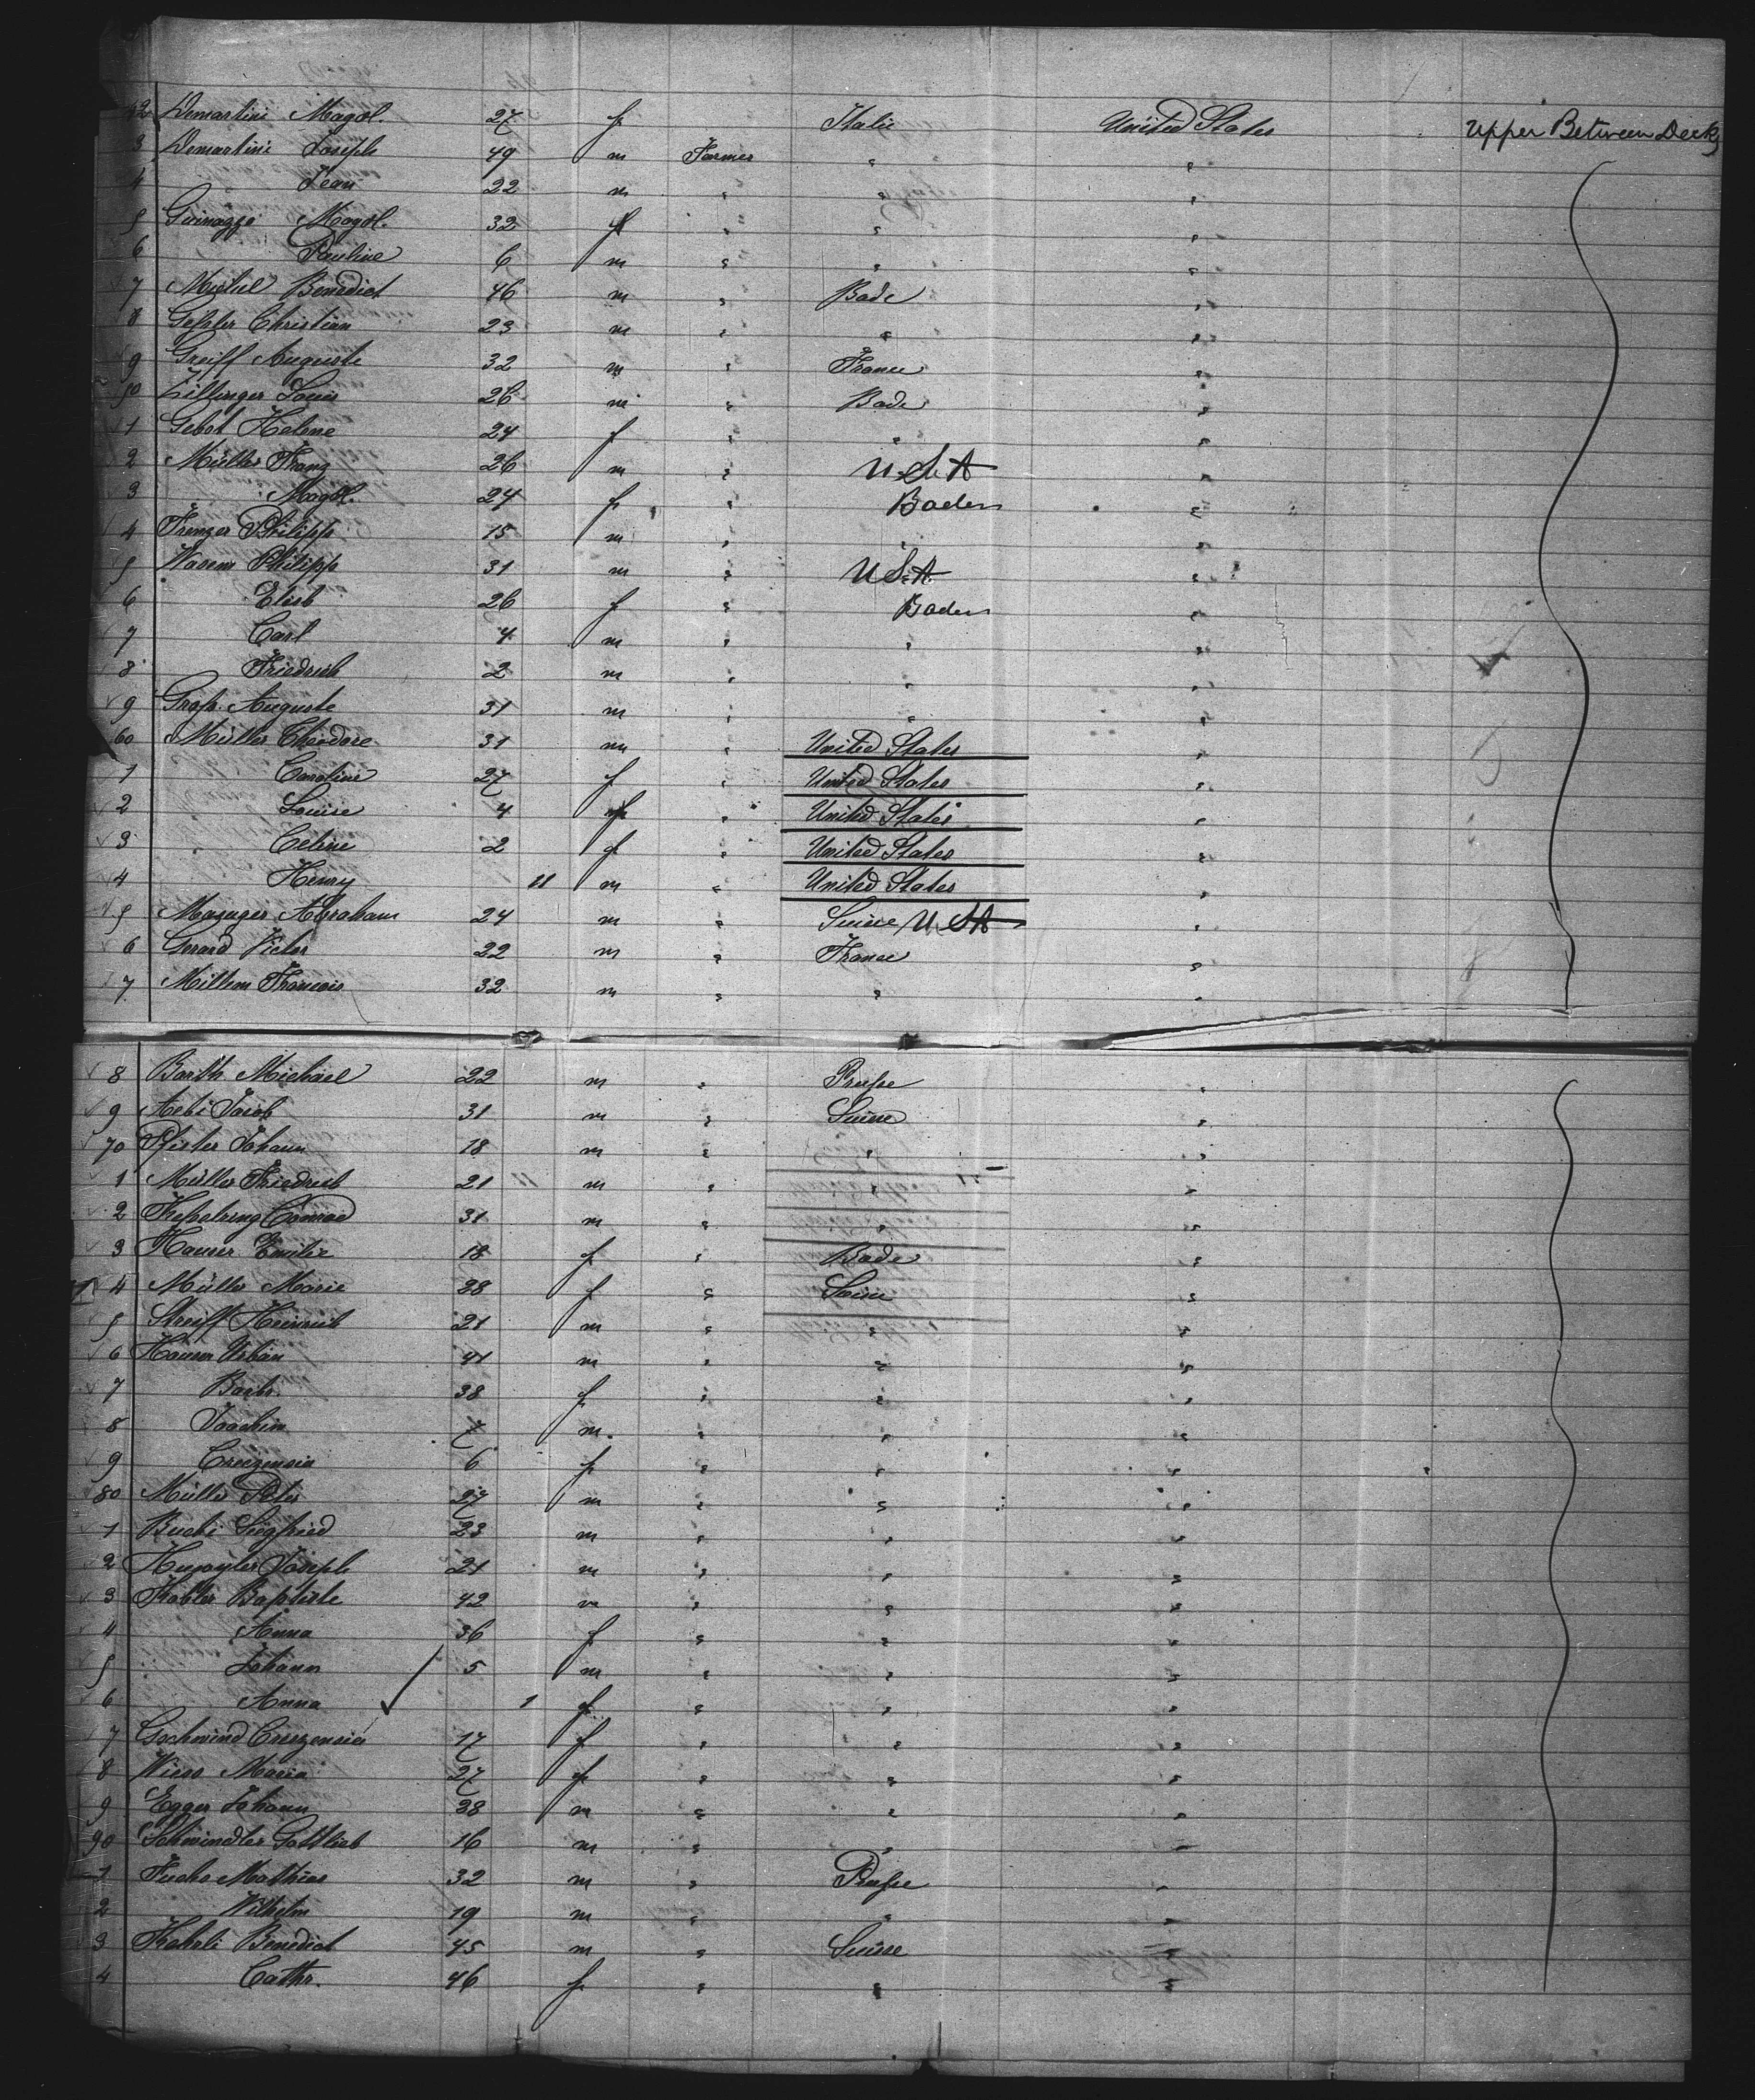 42 Demartini Magdl. 27 f Italie United States Upper Between Decks
3 Demartini Joseph 49 m Farmer " "
4 Jean 22 m " " "
5 Magdl. 32 f " " "
6 Pauline 6 m " " "
7 Michel Benedict 46 m " Bade "
8 Geßler Christian 23 m " " "
9 Greiff Auguste 32 m " France "
50 Zillinger Louis 26 m " Bade "
1 Gebot Helene 24 f " " "
2 Müller Franz 26 m " U.S.A "
3 Magdl. 24 f " Baden "
4 Frenzer Philipp 15 m " " "
5 Wasem Philipp 31 m " U.S.A. "
6 Elisb 26 f " Baden "
7 Carl 4 m " " "
8 Friedrich 2 m " " "
9 Groß Auguste 31 m " " "
60 Müller Theodore 31 m " United States "
1 Caroline 27 f " United States "
2 Louise 4 f " United States "
3 Celine 2 f " United States "
4 Henry 11 m " United States "
5 Abraham 24 m " Suisse U.S.A "
6 Gerard Victor 22 m " France "
7 Millem Francois 32 m " " "
8 Barth Michael 22 m " Preuße "
9 Aebi Jacob 31 m " Suisse "
70 Pfister Johann 18 m " " "
1 Müller Friedrich 21 m " " "
2 Keßelring Conrad 31 m " " "
3 Hauser Emilie 18 f " Bade "
4 Müller Marie 28 f " Suisse "
5 Streiff Heinrich 21 m " " "
6 Hauser Urban 41 m " " "
7 Barb. 38 f " " "
8 Joachim 7 m " " "
9 Creszensia 6 f " " "
80 Müller Peter 27 m " " "
1 Buchi Siegfried 23 m " " "
2 Joseph 21 m " " "
3 Kobler Baptiste 42 m " " "
4 Anna 36 f " " "
5 Johann 5 m " " "
6 Anna 1 f " " "
7 Gschwind Creszensia 17 f " " "
8 Maria 27 f " " "
9 Egger Johann 38 m " " "
90 Schwindler Gottlieb 16 m " " "
1 Fuchs Mathias 32 m " Preuße "
2 Wilhelm 19 m " " "
3 Kohli Benedict 45 m " Suisse "
4 Cathr. 46 f " " "